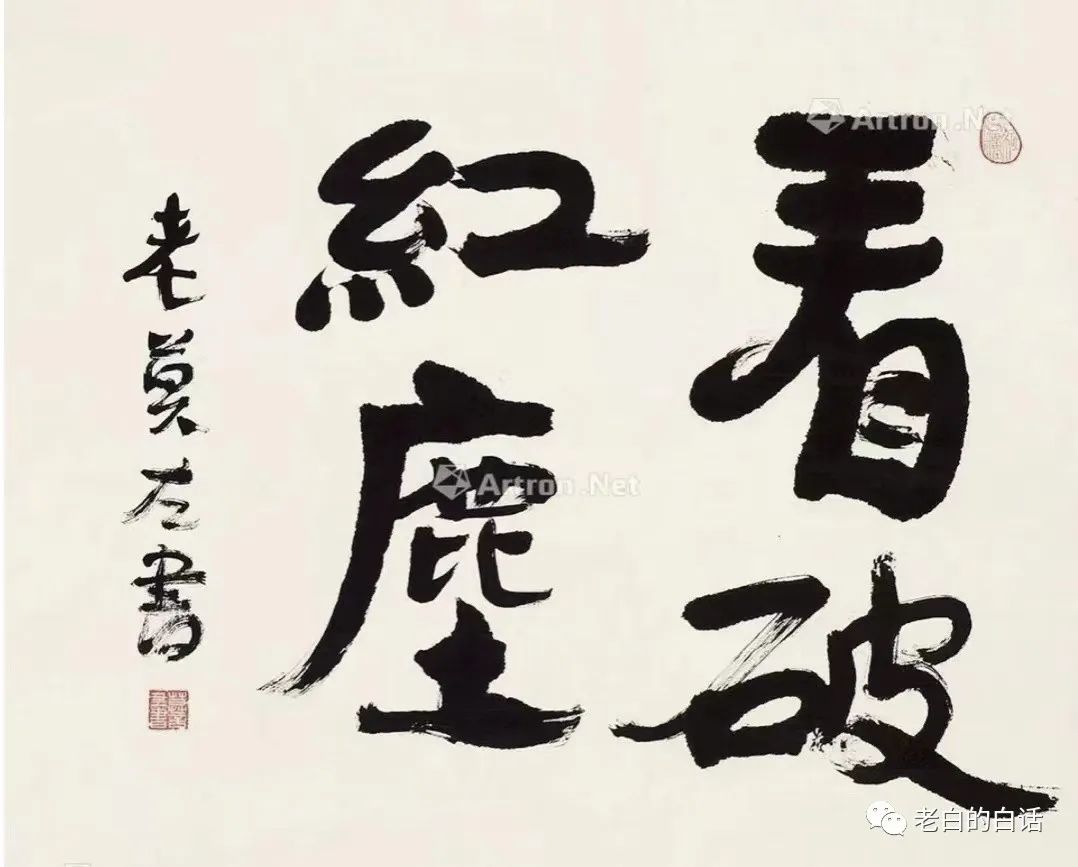 看破
紅塵
老莫左書
Artron.Net
Artron.Net
老白的白话